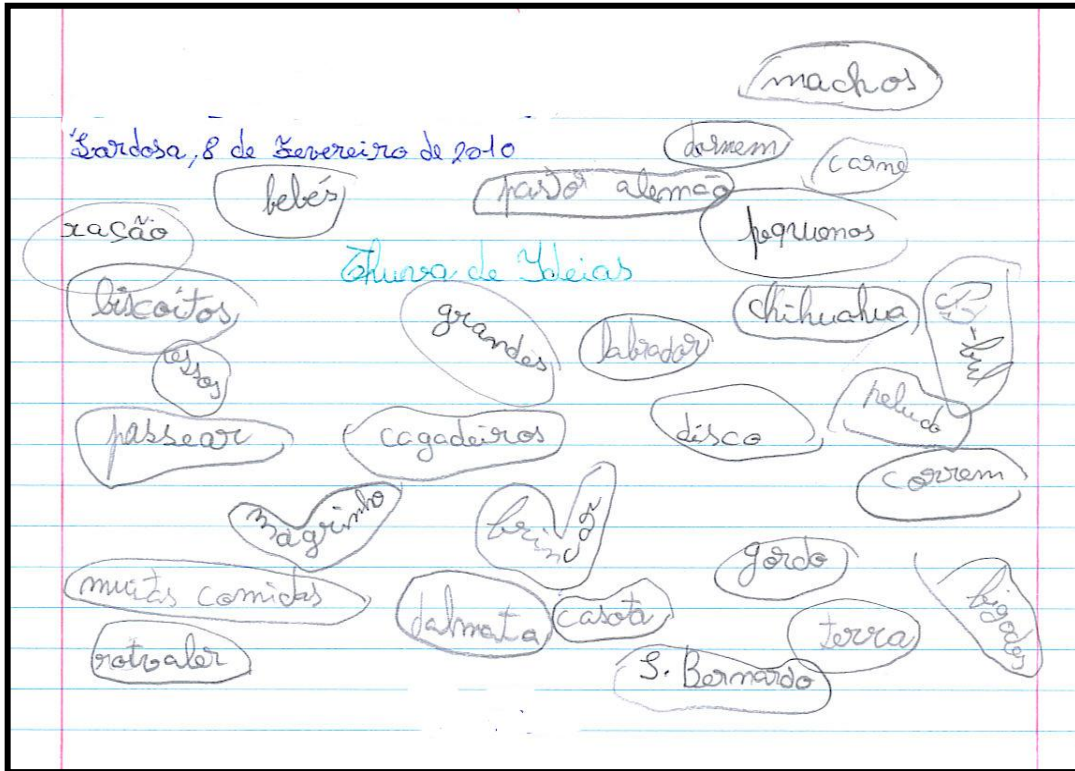 machos
Lardosa, 8 de Fevereiro de 2010
dormem
carne
bebés
pastor alemão
ração
pequenos
Chuva de Ideias
biscoitos
grandes
chihuahua
labrador
ossos
peludo
passear
cagadeiros
disco
correm
magrinho
brincar
gordo
muitas comidas
dalmata
casota
terra
bigodes
rotvaler
S. Bernardo